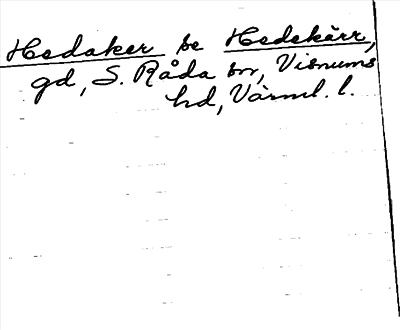 Hedaker se Hedekärr,
gd, S. Råda sn, Visnums
hd, Värml. l.